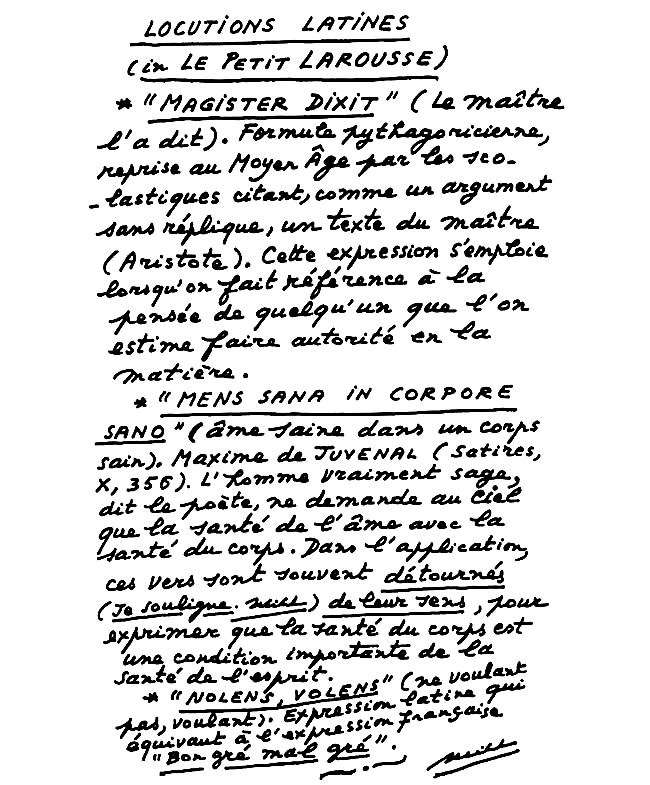 LOCUTIONS LATINES
(in LE PETIT LAROUSSE)
* "MAGISTER DIXIT" (Le maître
l'a dit). Formule pythagoricienne,
reprise au Moyen Âge par les sco-
-lastiques citant, comme un argument
sans réplique, un texte du maître
(Aristote). Cette expression s'emploie
lorsqu'on fait référence à la
pensée de quelqu'un que l'on
estime faire autorité en la
matière.
* "MENS SANA IN CORPORE
SANO" (âme saine dans un corps
sain). Maxime de JUVENAL (Satires,
X, 356). L'homme vraiment sage,
dit le poète, ne demande au ciel
que la santé de l'âme avec la
santé du corps. Dans l'application,
ces vers sont souvent détournés
(Je souligne. ) de leur sens, pour
exprimer que la santé du corps est
une condition importante de la
santé de l'esprit.
* "NOLENS, VOLENS" (ne voulant
pas, voulant). Expression latine qui
équivaut à l'expression française
"Bon gré mal gré".